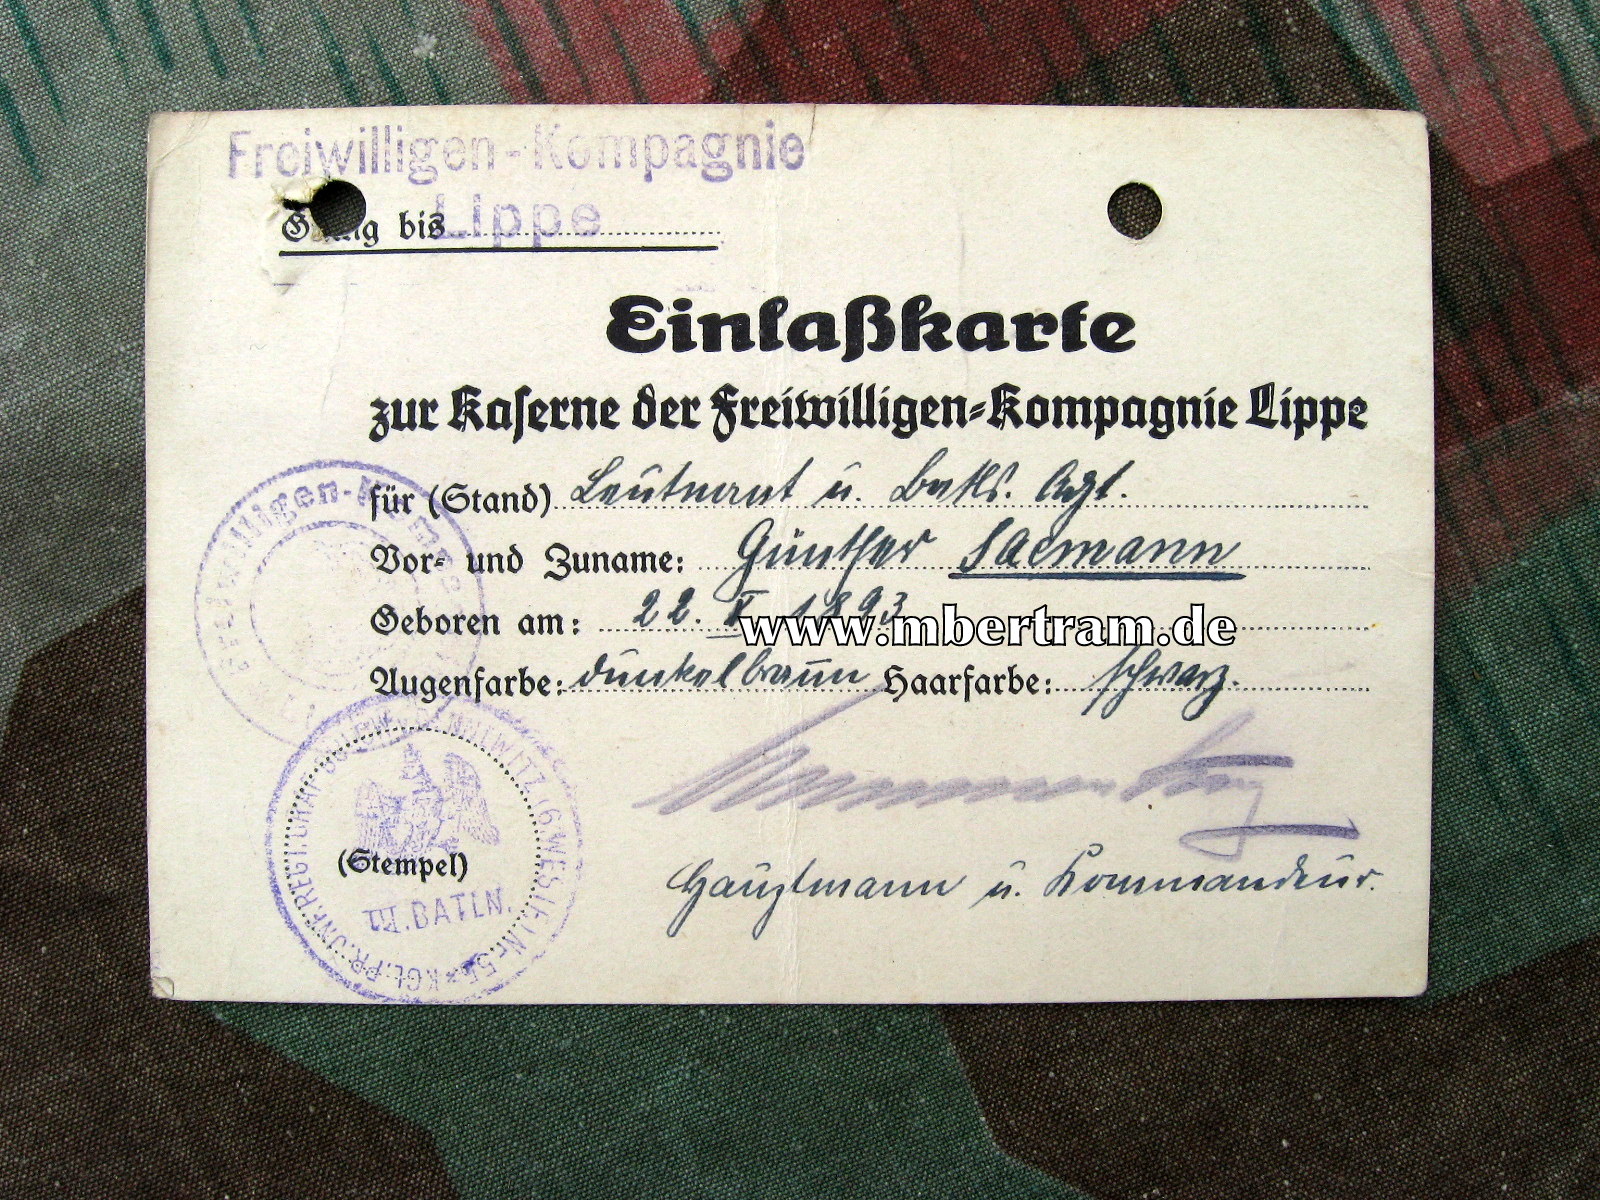 Freiwilligen-Kompagnie
Lippe
Gültig bis
Einlaßkarte
zur Kaserne der Freiwilligen-Kompagnie Lippe
für (Stand) Leutnant u. Batls. Agt.
Vor- und Zuname: Günther Sacmann
Geboren am: 22. X 1893
www.mbertram.de
Augenfarbe: dunkelbraun Haarfarbe: schwarz.
Freiwilligen-Komp
(Stempel)
III. BATLN.
KGL. PR. INF. REGT. GRAF BÜLOW v. DENNEWITZ (6. WESTF.) Nr. 55
Hauptmann u. Kommandeur.